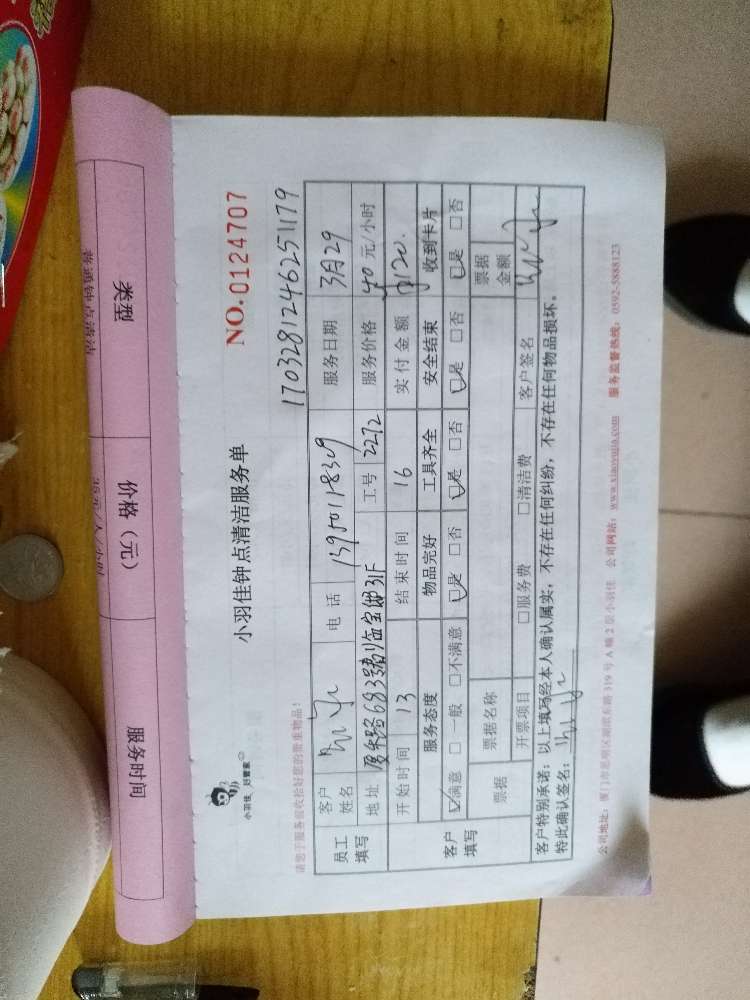 类型
价格（元）
服务时间
普通钟点清洁
小羽佳 好管家
小羽佳钟点清洁服务单
NO.0124707
请您于服务前收拾好您的贵重物品！
17032812462511179
员工填写
客户姓名
电话 13900118309
服务日期 3月29
地址
工号 2272
服务价格 40元/小时
开始时间 13
结束时间 16
实付金额 120.
客户填写
服务态度 物品完好 工具齐全 安全结束 收到卡片
☑满意 □一般 □不满意 ☑是 □否 ☑是 □否 ☑是 □否 ☑是 □否
票据
票据名称
票据金额
开票项目 □服务费 □清洁费
客户签名
客户特别承诺：以上填写经本人确认属实，不存在任何纠纷，不存在任何物品损坏。
特此确认签名：
公司地址：厦门市思明区湖滨东路319号A幢2层小羽佳 公司网站：www.xiaoyujia.com 服务监督热线：0592-5888123